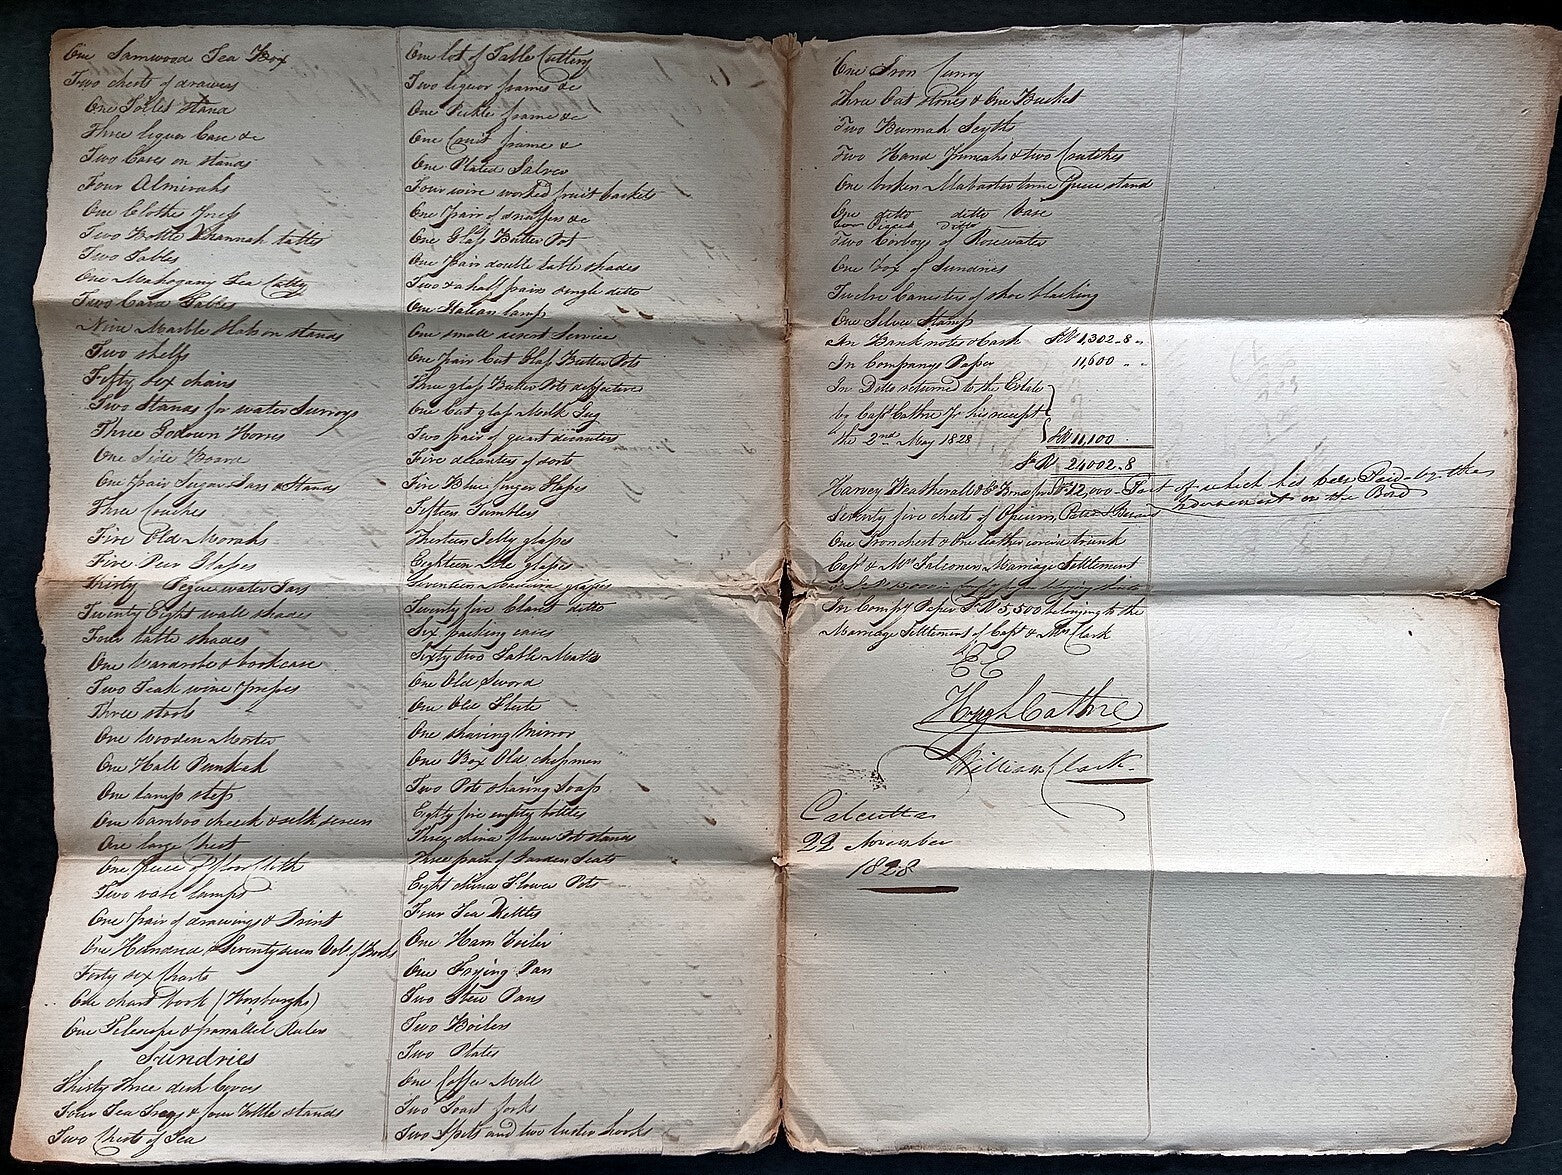 One Samwood Tea Box
Two chests of drawers
One Toilet stand
Three liquor Case &c
Two Cases on stands
Four Almirahs
One Clothes Press
Two Bottle Khannah tatts
Two Tables
One Mahogany Tea Caddy
Two Card Tables
Nine Marble Slabs on stands
Two shelfs
Fifty six chairs
Two Stands for water Surroys
Three Godown Horns
One Side Board
One pair Sugar Jars & Stands
Three Couches
Five Old Morahs
Five Peir Glasses
Thirty Pegue water Jars
Twenty Eight wall shades
Four table shades
One Wardrobe & bookcase
Two Teak wine presses
Three stools
One Wooden Morter
One Hall Punkah
One lamp step
One bamboo cheek & silk screen
One large Chest
One piece of floor Cloth
Two vase lamps
One pair of drawings & Print
One Hundred & Seventy seven Vol. of Books
Forty six Charts
One chart book (Horsburghs)
One Telescope & parrallel Ruler
Sundries
Thirty three dish Covers
Four Tea Trays & four bottle stands
Two Chests of Tea
One lot of Table Cuttlery
Two liquor frames &c
One Pickle frame &c
One Cruit frame &
One Plated Salver
Four wire worked fruit baskets
One pair of snuffers &c
One Glass Butter Pot
One Pair double table shades
Two & a half pairs single ditto
One Italian lamp
One small desert Service
One Pair Cut Glass Butter Pots
Three glass Butter Pots deffective
One Cut glass Milk Jug
Two pair of quart decanters
Five decanters of sorts
Five Blue finger Glasses
Fifteen Tumblers
Thirteen Jelly glasses
Eighteen glasses
Seventeen glasses
Twenty five Claret ditto
Six packing cases
Sixty two Table Matts
One Old Sword
One Old Flute
One shaving Mirror
One Box Old chessmen
Two Pots shaving Soap
Eighty five empty bottles
Three china flower Pot stands
Three pair of Garden Seats
Eight china Flower Pots
Four Tea Kettles
One Ham Boiler
One Frying Pan
Two Stew Pans
Two Boilers
Two Plates
One Coffee Mill
Two Toast forks
Two Spits and two hooks
One Iron
Three Oat Stones & One Bucket
Two Burmah Scyths
Two Hand & two Crutches
One broken Alabaster time Piece stand
One ditto ditto Vase
two Pieces Ditto
Two Corboys of Rosewater
One box of Sundries
Twelve Canisters of shoe blacking
One Silver Stamp
In Bank notes & Cash SaRs 1,302..8 "
In Companys Paper 11,600 " "
In Ditto returned to the Estate
by Capt Cathre pr his receipt
the 2nd May 1828 SaRs 11,100
SaRs 24002..8
Harvey Weatherall & Co Bond for SaRs 12,000 - Part of which has been Paid by the
Indorsement on the Bond
Seventy five chests of Opium,
One Ironchest & One leather covered trunk
Capt & Mrs Falconers Marriage Settlement
In Compy Paper SaRs 5,500 belonging to the
Marriage Settlement of Capt & Mrs Clark
EE
Hugh Cathre
William Clark
Calcutta
22 November
1828